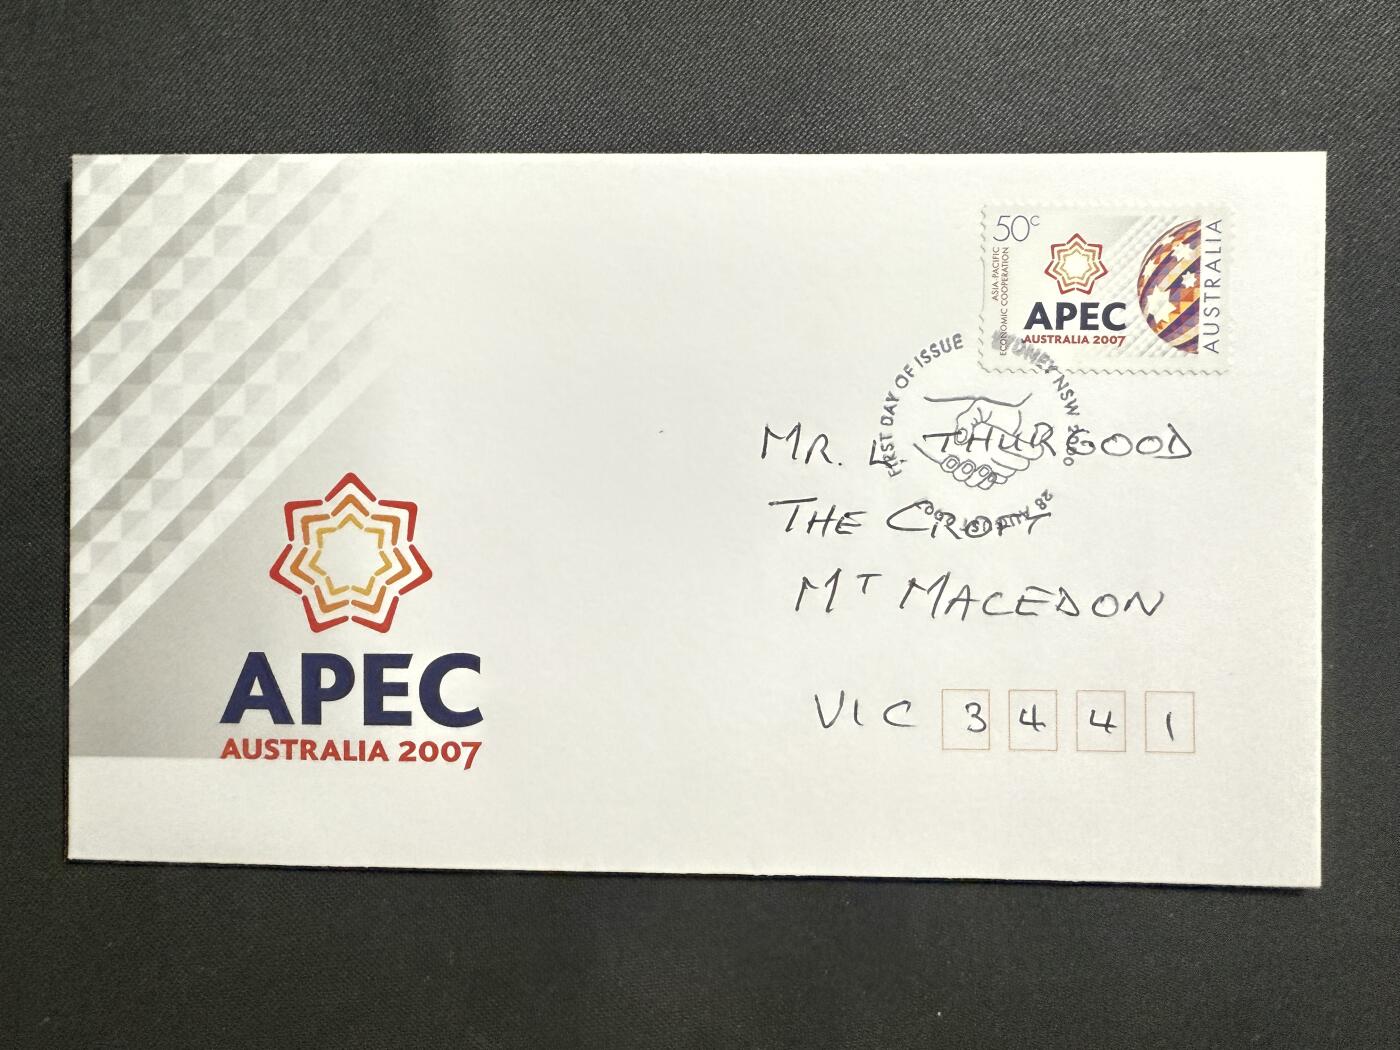 50c
ASIA-PACIFIC
ECONOMIC COOPERATION
APEC
AUSTRALIA 2007
AUSTRALIA
FIRST DAY OF ISSUE
SYDNEY NSW 2000
28 AUGUST 2007
MR. L THURGOOD
THE CROFT
MT MACEDON
VIC 3441
APEC
AUSTRALIA 2007